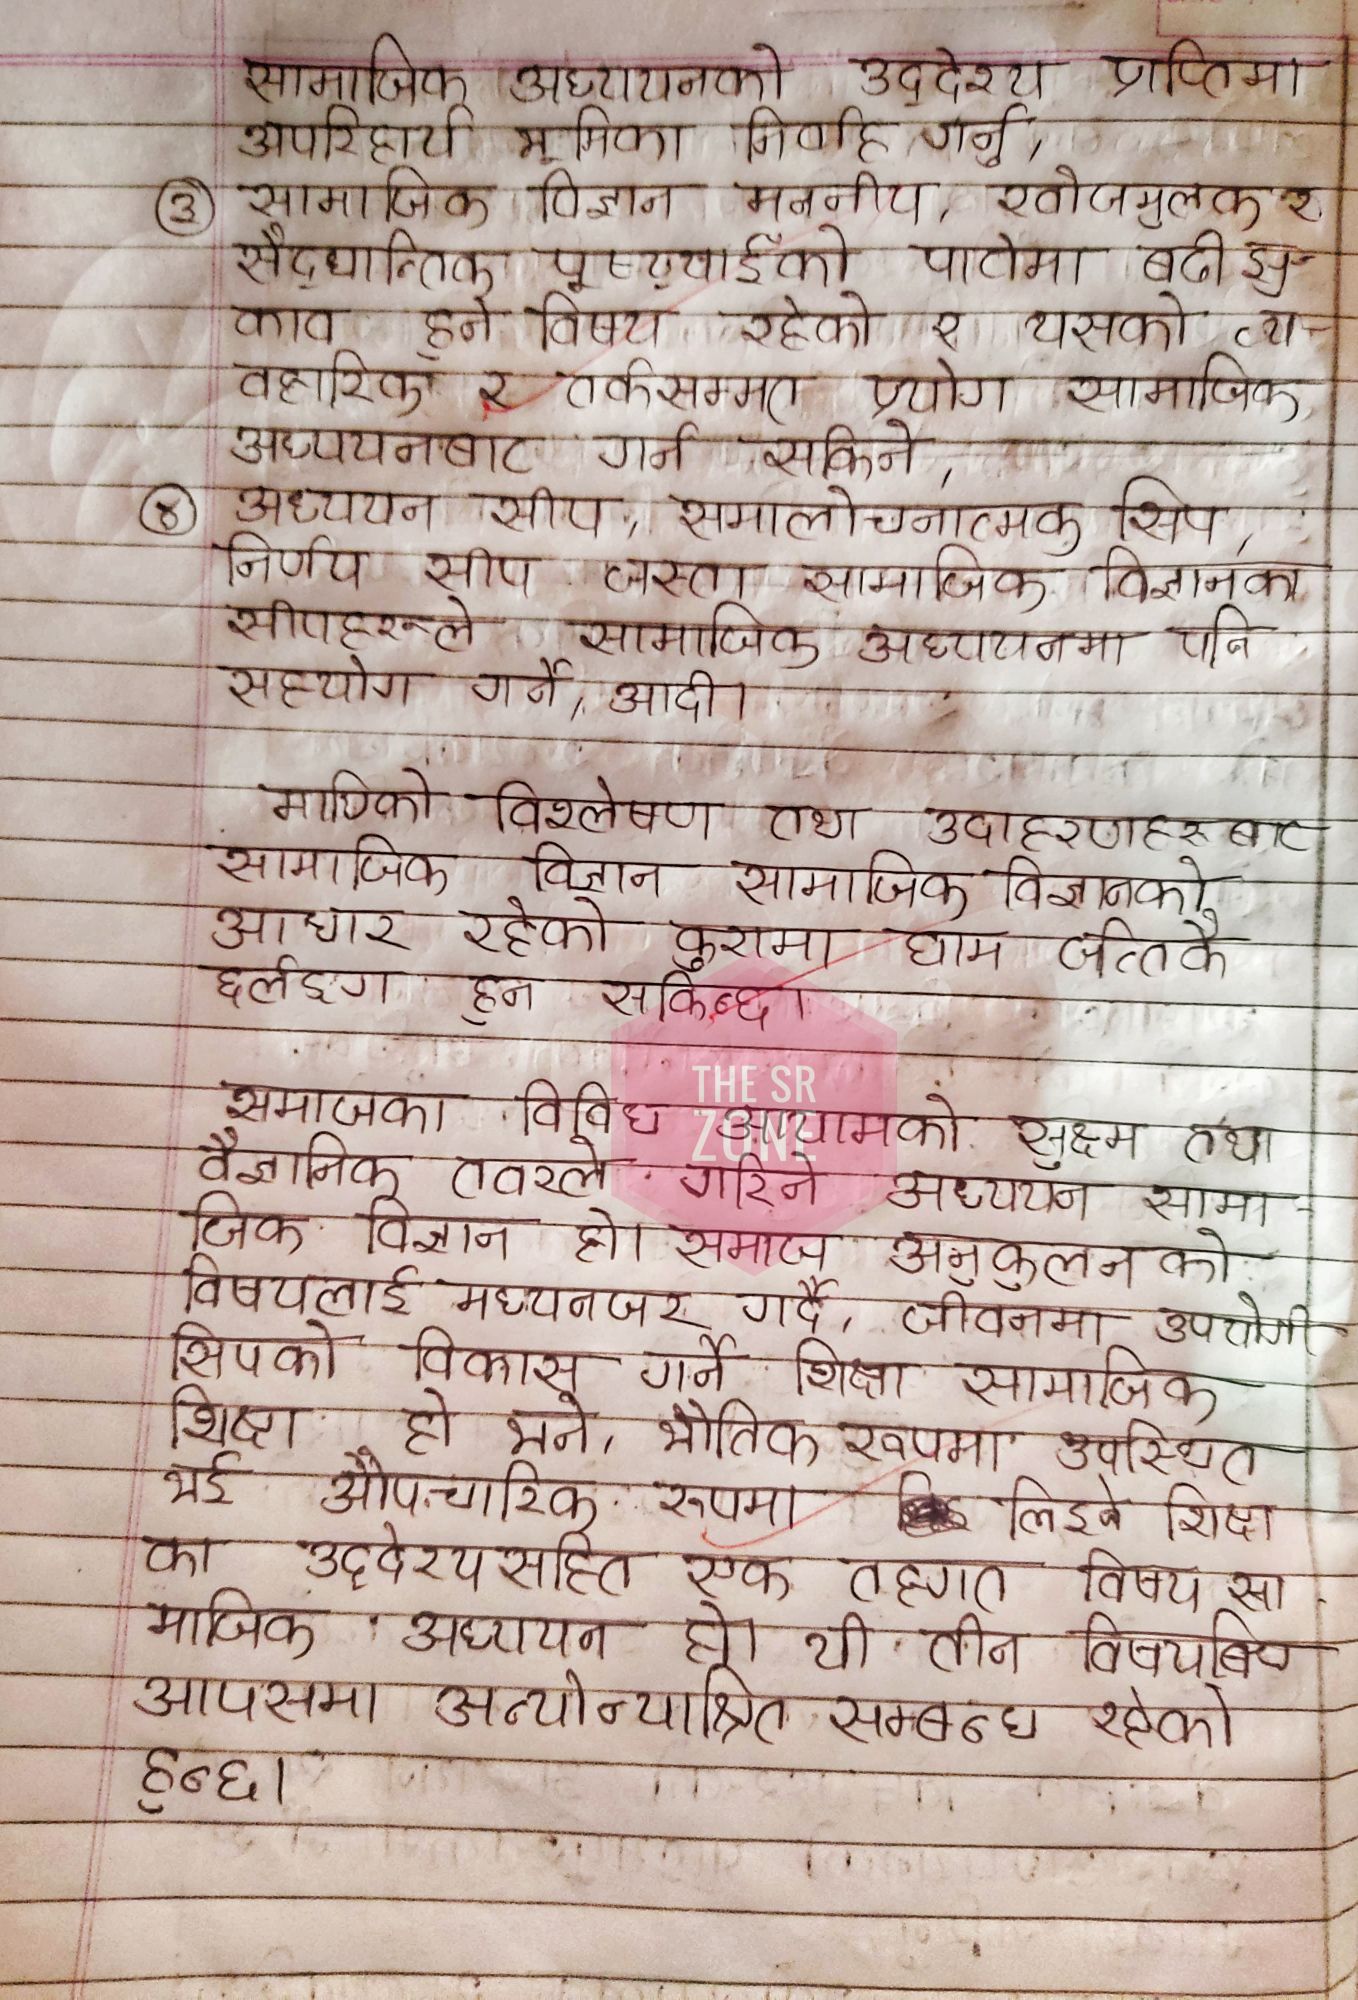 सामाजिक अध्ययनको उद्देश्य प्राप्तिमा
अपरिहार्य भूमिका निर्वाह गर्नु,
③ सामाजिक विज्ञान मननीय, खोजमुलक र
सैद्धान्तिक पृष्ठयाईंको पाटोमा बढी झु-
काव हुने विषय रहेको र यसको व्य-
वहारिक र तर्कसम्मत प्रयोग सामाजिक
अध्ययनबाट गर्न सकिने,
④ अध्ययन सीप, समालोचनात्मक सिप,
निर्णय सीप जस्ता सामाजिक विज्ञानका
सीपहरूले सामाजिक अध्ययनमा पनि
सहयोग गर्ने, आदी।
माथिको विश्लेषण तथा उदाहरणहरुबाट
सामाजिक विज्ञान सामाजिक विज्ञानको
आधार रहेको कुरामा घाम जत्तिकै
छर्लङ्ग हुन सकिन्छ।
THE SR
ZONE
समाजका विविध आयामको सुक्ष्म तथा
वैज्ञानिक तवरले गरिने अध्ययन सामा-
जिक विज्ञान हो। समाज अनुकुलनको
विषयलाई मध्यनजर गर्दै, जीवनमा उपयोगी
सिपको विकास गर्ने शिक्षा सामाजिक
शिक्षा हो भने, भौतिक रुपमा उपस्थित
भई औपचारिक रुपमा लिइने शिक्षा
का उद्देश्यसहित एक तहगत विषय सा
माजिक अध्ययन हो। यी तीन विषयबिच
आपसमा अन्योन्याश्रित सम्बन्ध रहेको
हुन्छ।